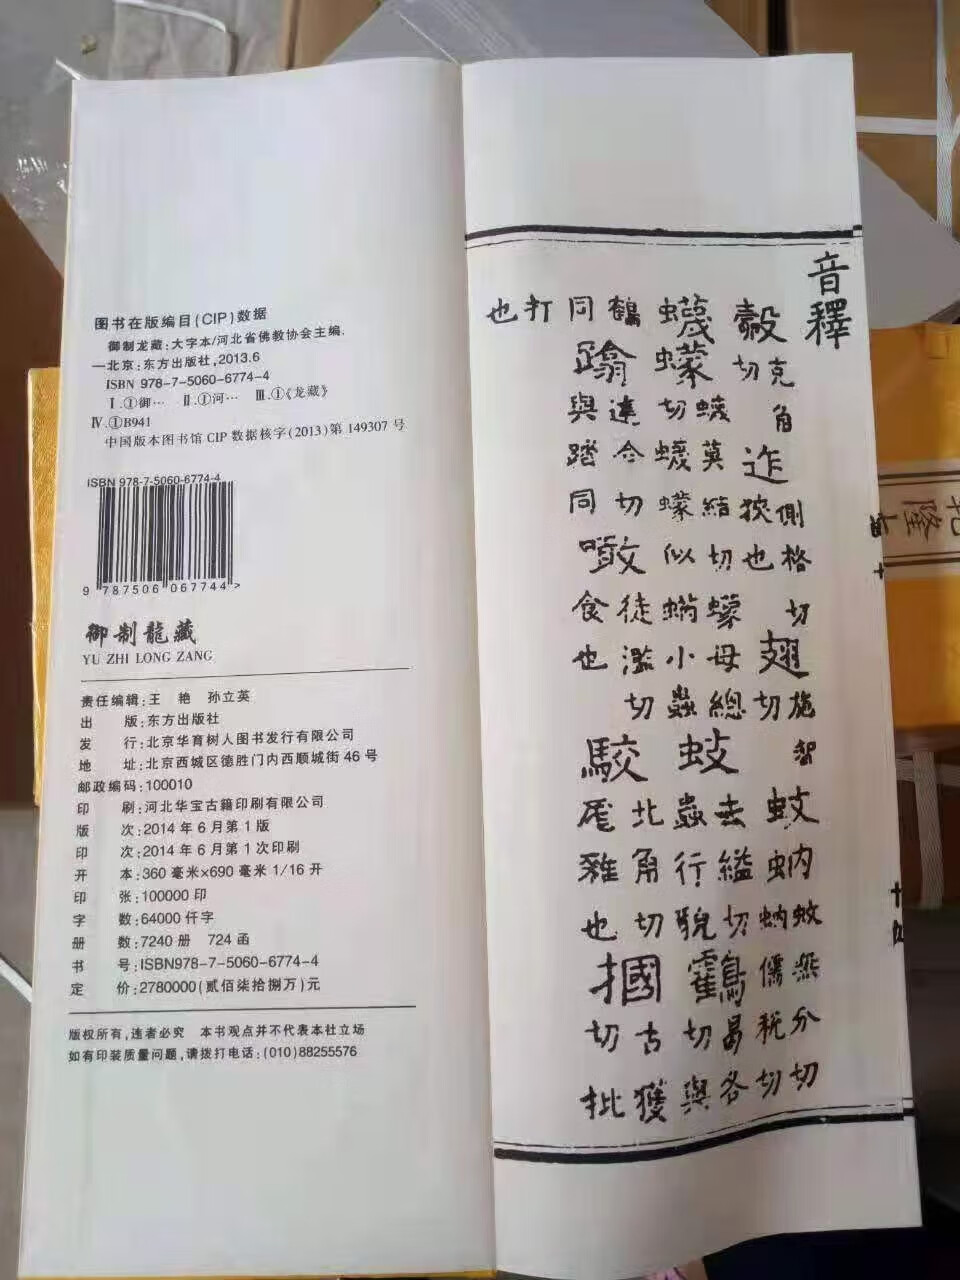 图书在版编目(CIP)数据
御制龙藏:大字本/河北省佛教协会主编.
—北京:东方出版社,2013.6
ISBN 978-7-5060-6774-4
Ⅰ.①御… Ⅱ.①河… Ⅲ.①《龙藏》
Ⅳ.①B941
中国版本图书馆 CIP 数据核字(2013)第 149307 号
ISBN 978-7-5060-6774-4
9 787506 067744>
御制龍藏
YU ZHI LONG ZANG
责任编辑:王 艳 孙立英
出 版:东方出版社
发 行:北京华育树人图书发行有限公司
地 址:北京西城区德胜门内西顺城街 46 号
邮政编码:100010
印 刷:河北华宝古籍印刷有限公司
版 次:2014 年 6 月第 1 版
印 次:2014 年 6 月第 1 次印刷
开 本:360 毫米×690 毫米 1/16 开
印 张:100000 印
字 数:64000 仟字
册 数:7240 册 724 函
书 号:ISBN978-7-5060-6774-4
定 价:2780000(贰佰柒拾捌万)元
版权所有,违者必究 本书观点并不代表本社立场
如有印装质量问题,请拨打电话:(010)88255576
音釋
克角切 迮 側格切狹也 翅 施智切 蚊蚋 蚊無分切蚋儒稅切
蠛蠓 蠛莫結切蠓母總切蠛蠓似蝻小蟲 蚑 去縊切蟲行貌 鶴 曷各切與
鶴同 蹹 達合切與踏同 噉 徒濫切食也 駮 北角切尨雜也 摑 古獲切批
打也